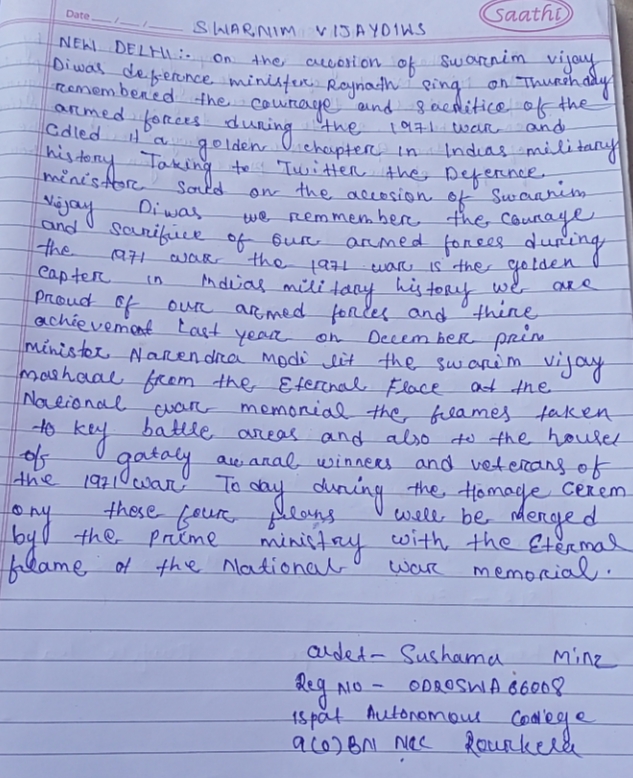 Date __/__/__
Saathi
SWARNIM VIJAYDIWS
NEW DELHI :- on the accosion of swarnim vijay
Diwas deference minister Rajnath sing on Thurshday
remembered the courage and sacritice of the
armed forces during the 1971 war and
Cdled it a golden chapter in Indias military
history Taking to Twitter the Deference
minister said on the accosion of Swarnim
Vijay Diwas we remmember the courage
and sacrifice of our armed forces during
the 1971 war the 1971 war is the golden
capter in Indias military history we are
proud of our armed forces and thire
achievement Last year on December prim
minister Narendra modi lit the swarnim vijay
mashaal from the Eternal Flace at the
National war memorial the flames taken
to key battle areas and also to the houses
of gataly awaral winners and veterans of
the 1971 war. To day during the Homage cerem
ony these four flams will be merged
by the prime ministry with the Eternal
flame of the National war memorial.
cadet - Sushama Minz
Reg NO - OD20SWA66008
ispat Autonomous College
9(O)BN NCC Rourkela